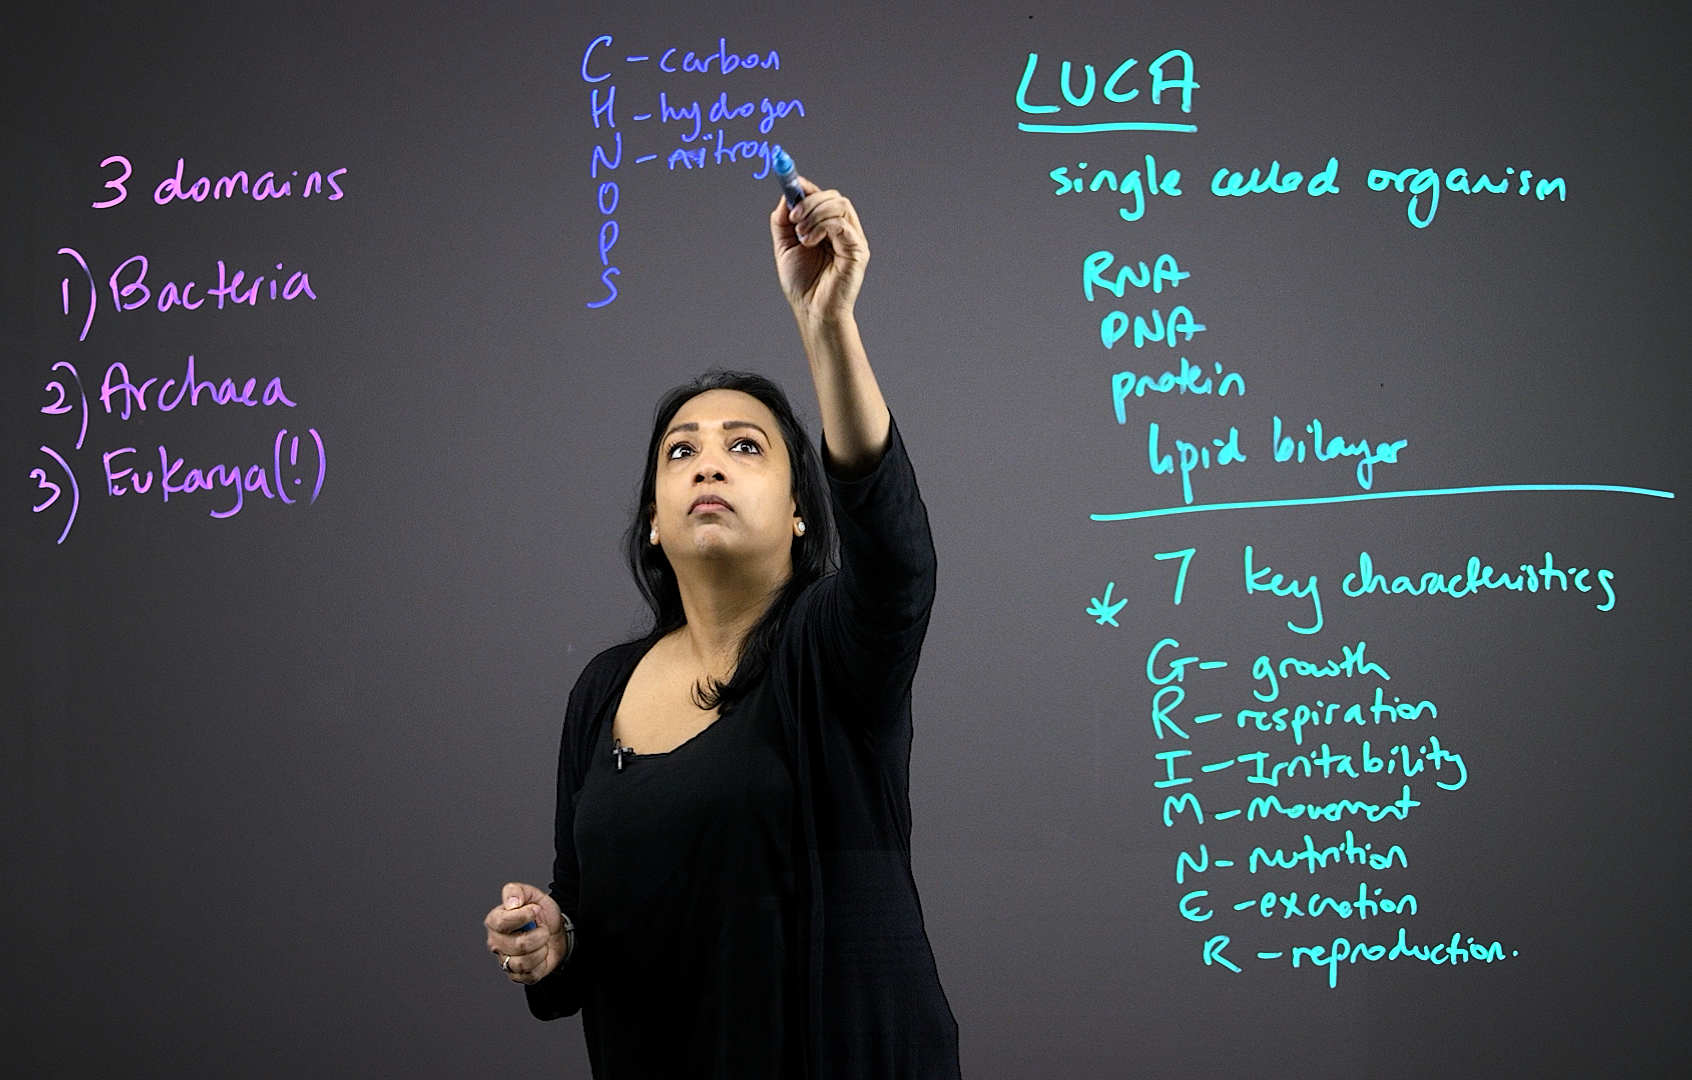 3 domains
1) Bacteria
2) Archaea
3) Eukarya(!)
C - carbon
H - hydrogen
N - nitroge
O
P
S
LUCA
single celled organism
RNA
DNA
protein
lipid bilayer
* 7 key characteristics
G - growth
R - respiration
I - Irritability
M - movement
N - nutrition
E - excretion
R - reproduction.